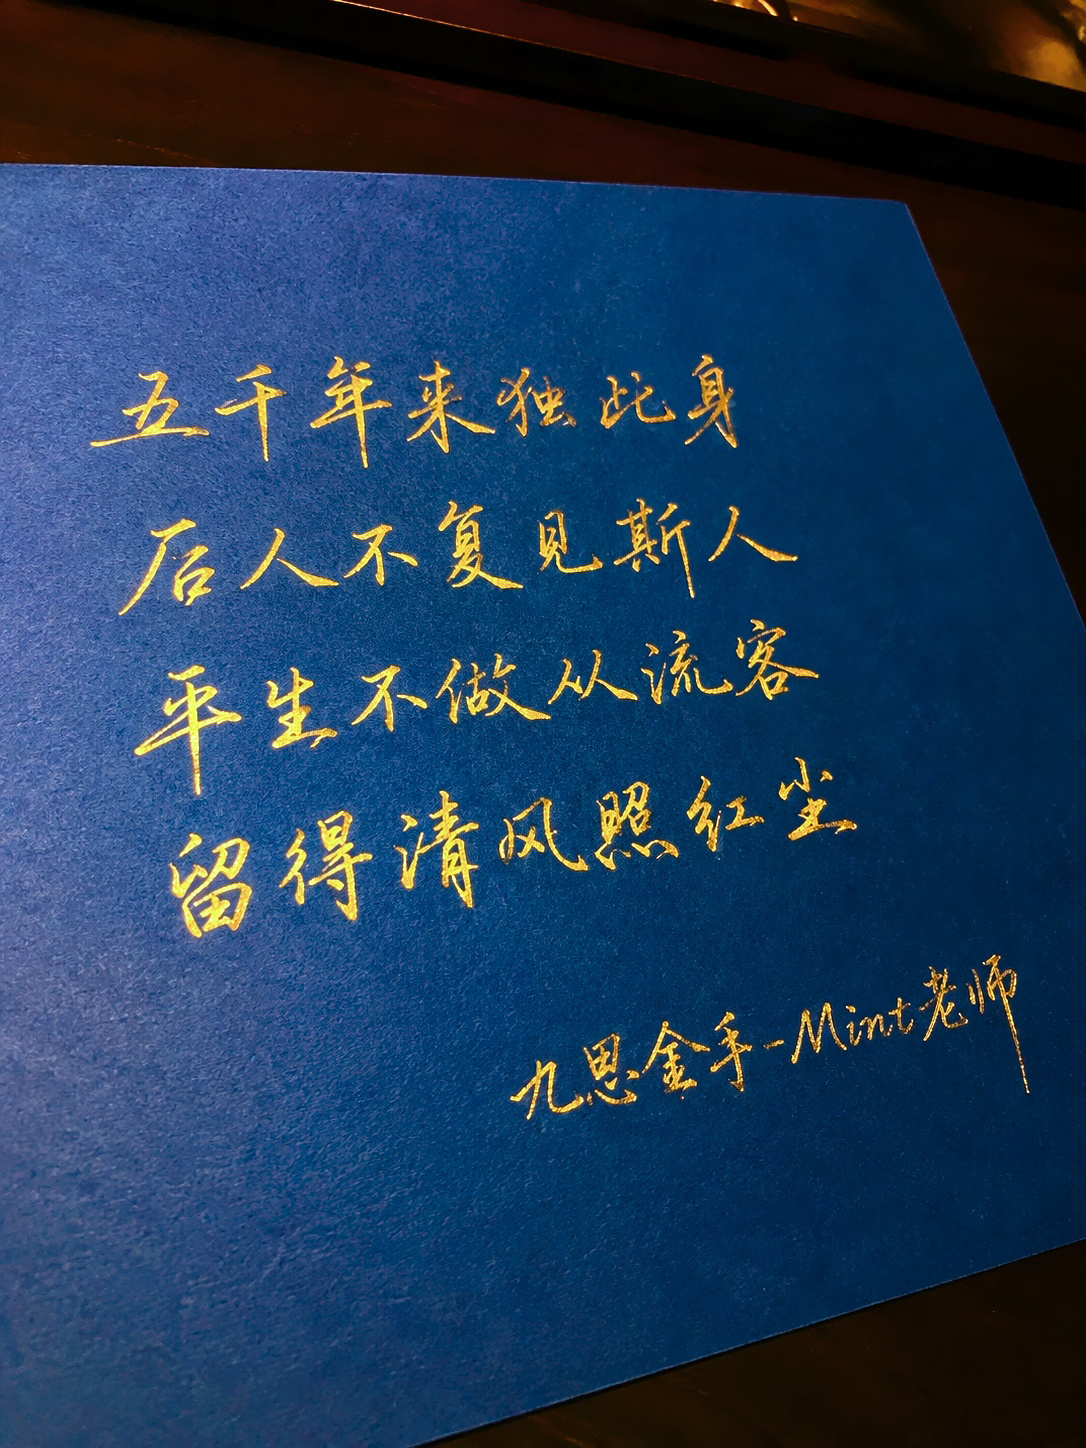 五千年来独此身
后人不复见斯人
平生不做从流客
留得清风照红尘
九思金手-Mint老师